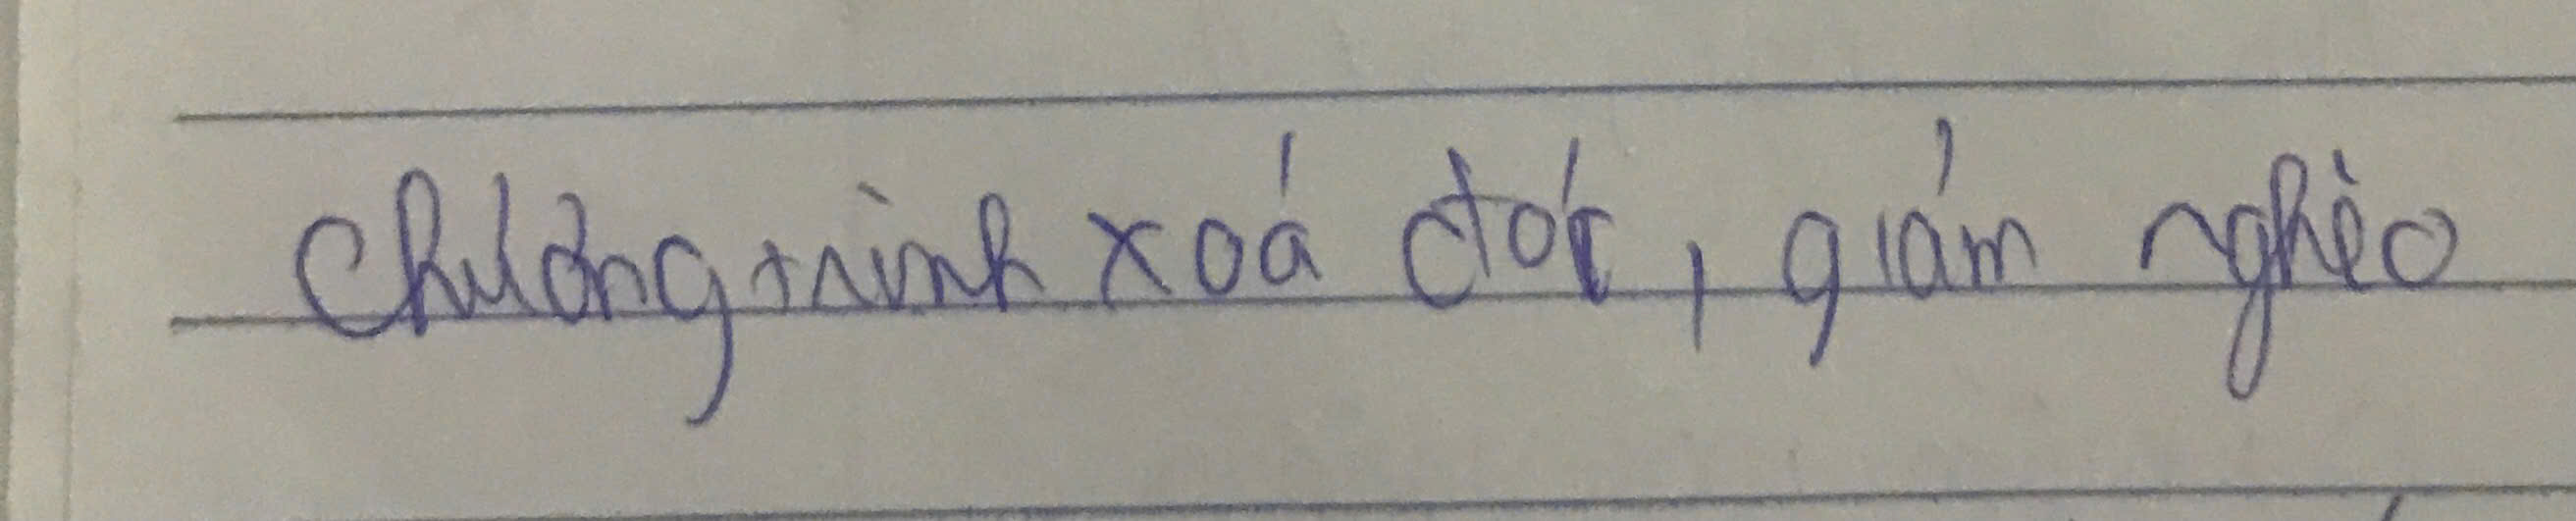 Chương trình xoá đói, giảm nghèo